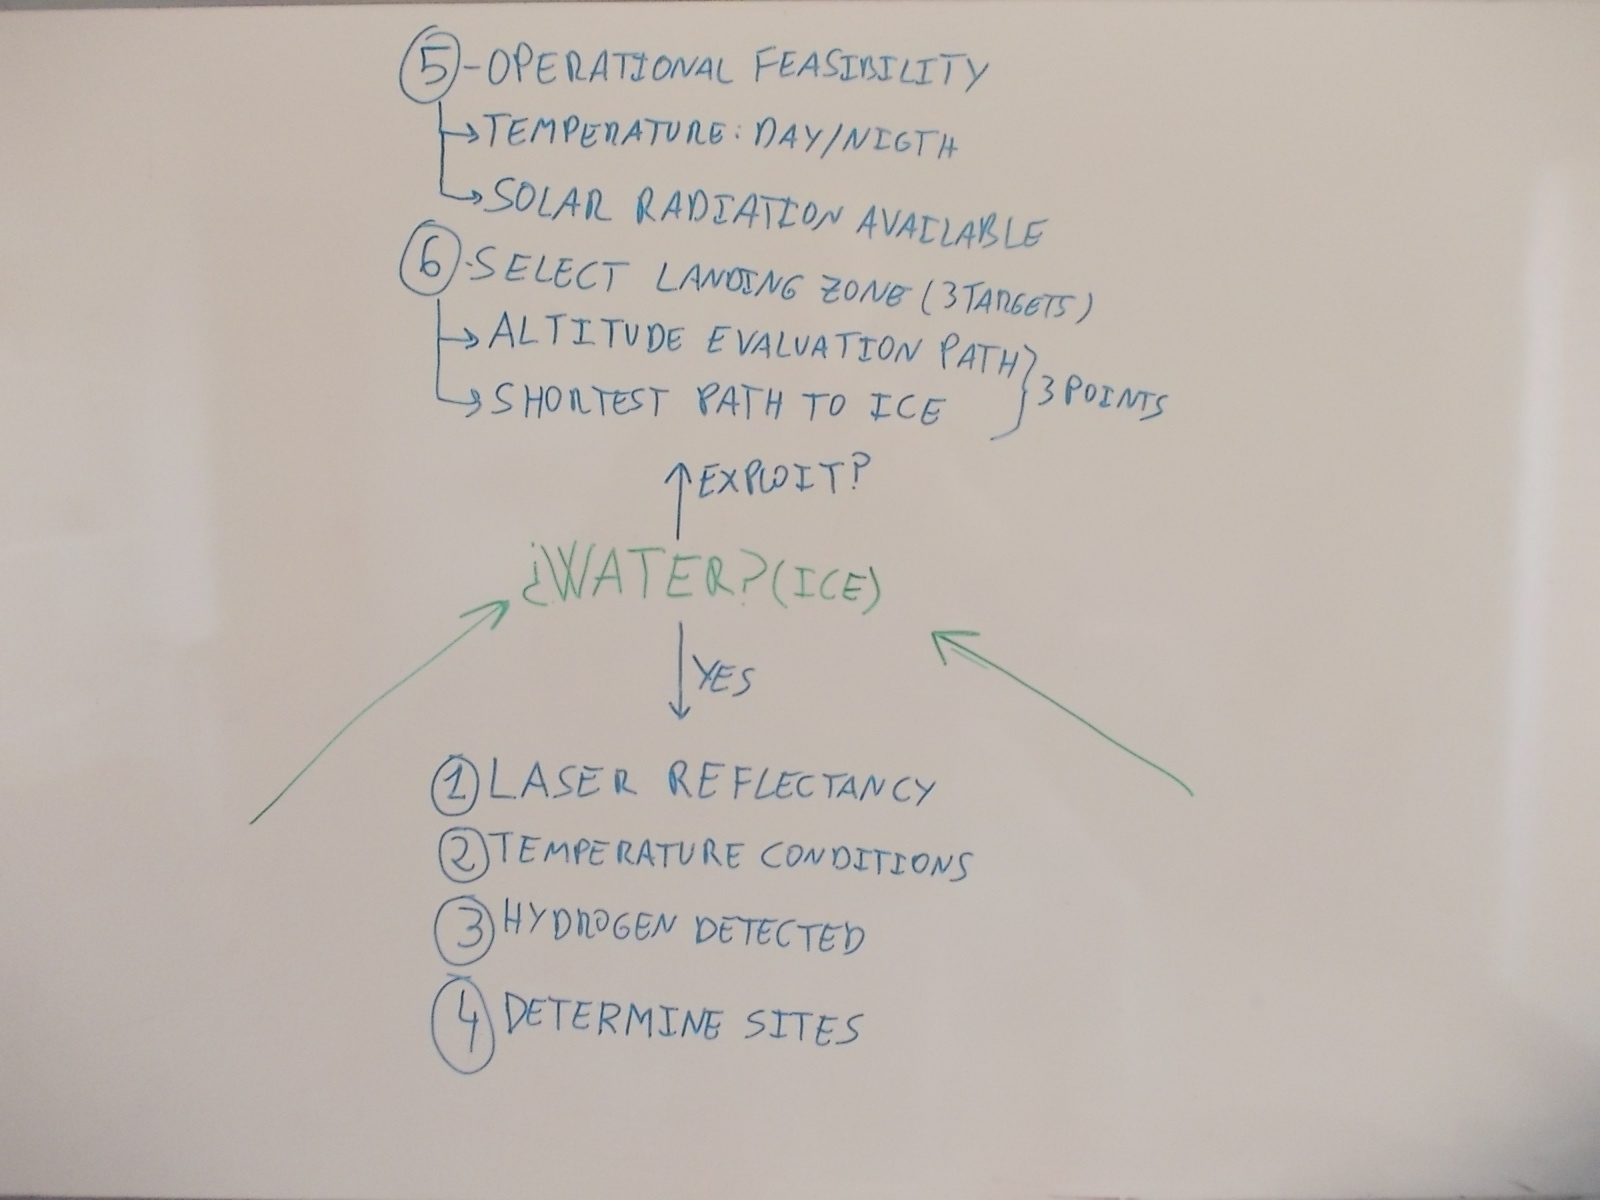 5-OPERATIONAL FEASIBILITY
TEMPERATURE: DAY/NIGTH
SOLAR RADIATION AVAILABLE
6-SELECT LANDING ZONE (3 TARGETS)
ALTITUDE EVALUATION PATH
SHORTEST PATH TO ICE
3 POINTS
EXPLOIT?
¿WATER? (ICE)
YES
1 LASER REFLECTANCY
2 TEMPERATURE CONDITIONS
3 HYDROGEN DETECTED
4 DETERMINE SITES